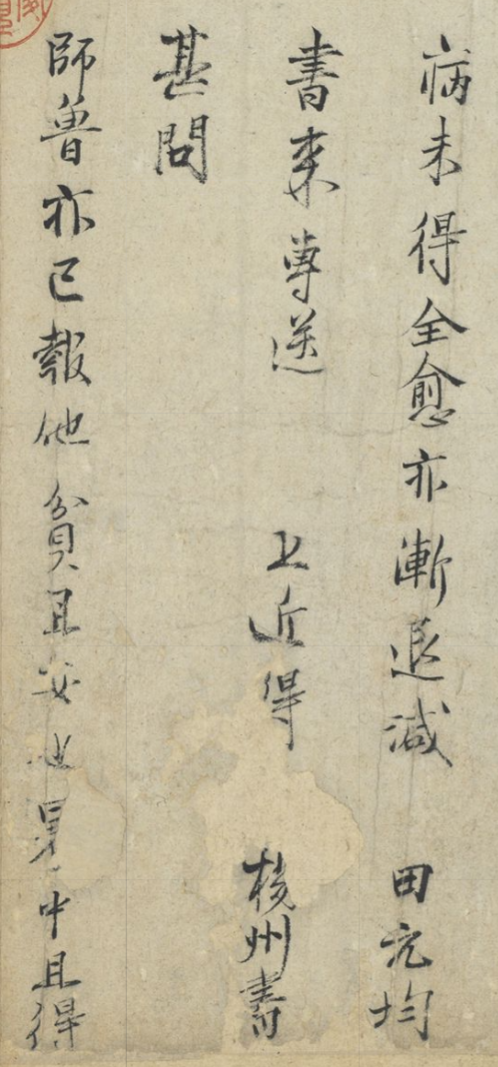 病未得全愈亦漸退減 田元均
書來專送 上近得 揚州書
甚問
師魯亦已報他貧且安也夏中且得